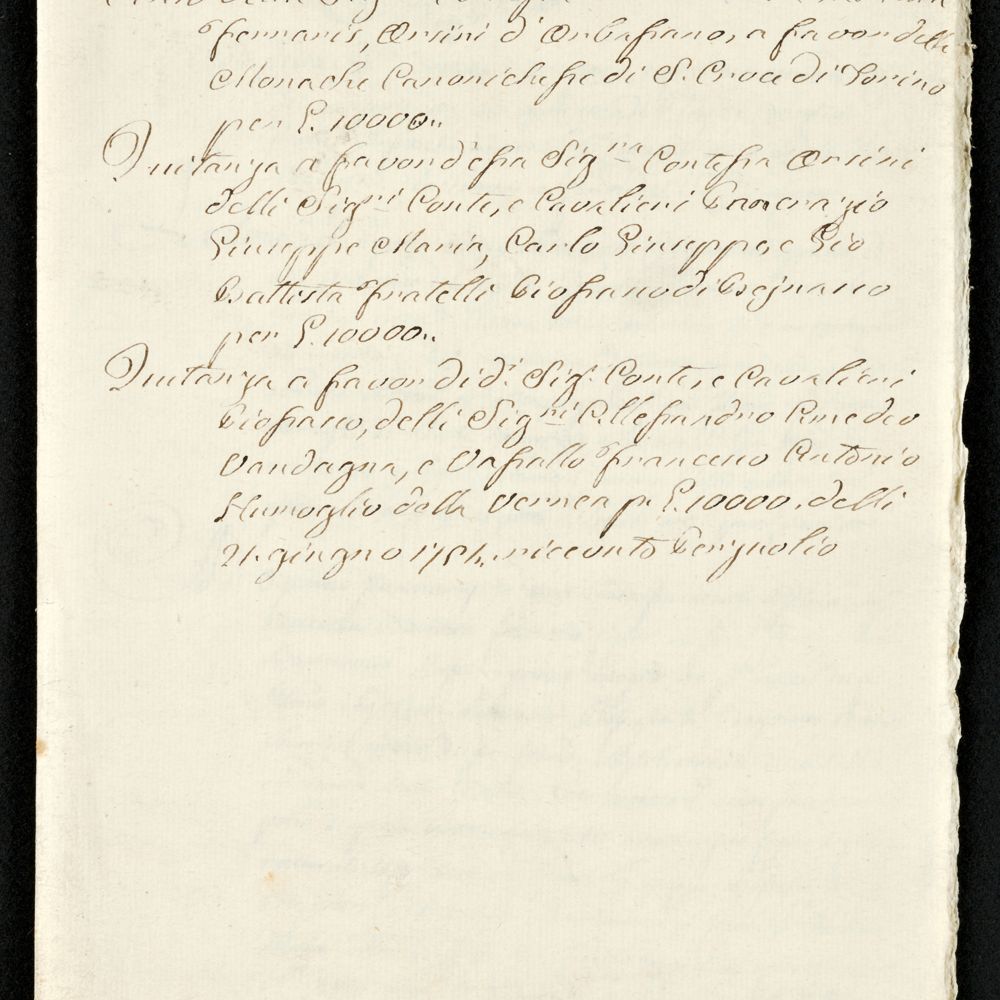 Ferraris, Orsini d'Orbassano, a favor delle
Monache Canonichesse di S. Croce di Torino
per L. 10000..
Quitanza a favor d'essa Sig.ra Contessa Orsini
delli Sig.ri Conte, e Cavalieri Pancrazio
Giuseppe Maria, Carlo Giuseppe, e Gio
Battista fratelli Piossasco di Beinasco
per L. 10000..
Quitanza a favor di d.i Sig.i Conte, e Cavalieri
Piossasco, delli Sig.ri Allessandro Amedeo
Vandagna, e Vassallo Francesco Antonio
della Vernea p. L. 10000. delli
21. giugno 1754. ricevuto Perignolio